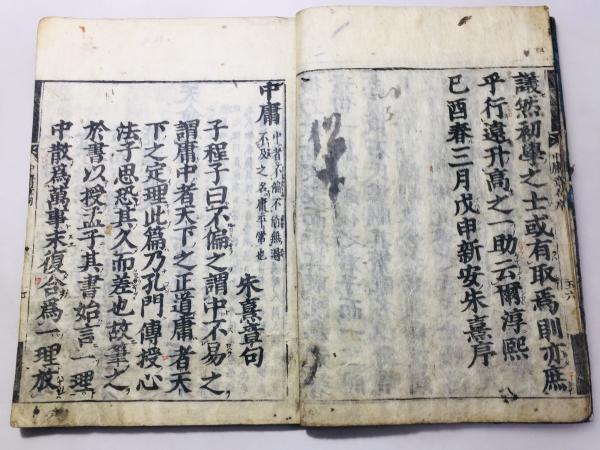 議然初學之士或有取焉則亦庶
乎行遠升高之一助云爾淳熙
己酉春三月戊申新安朱熹序
中庸 中者不偏不倚無過
不及之名庸平常也
朱熹章句
子程子曰不偏之謂中不易之
謂庸中者天下之正道庸者天
下之定理此篇乃孔門傳授心
法子思恐其久而差也故筆之
於書以授孟子其書始言一理
中散為萬事末復合為一理放